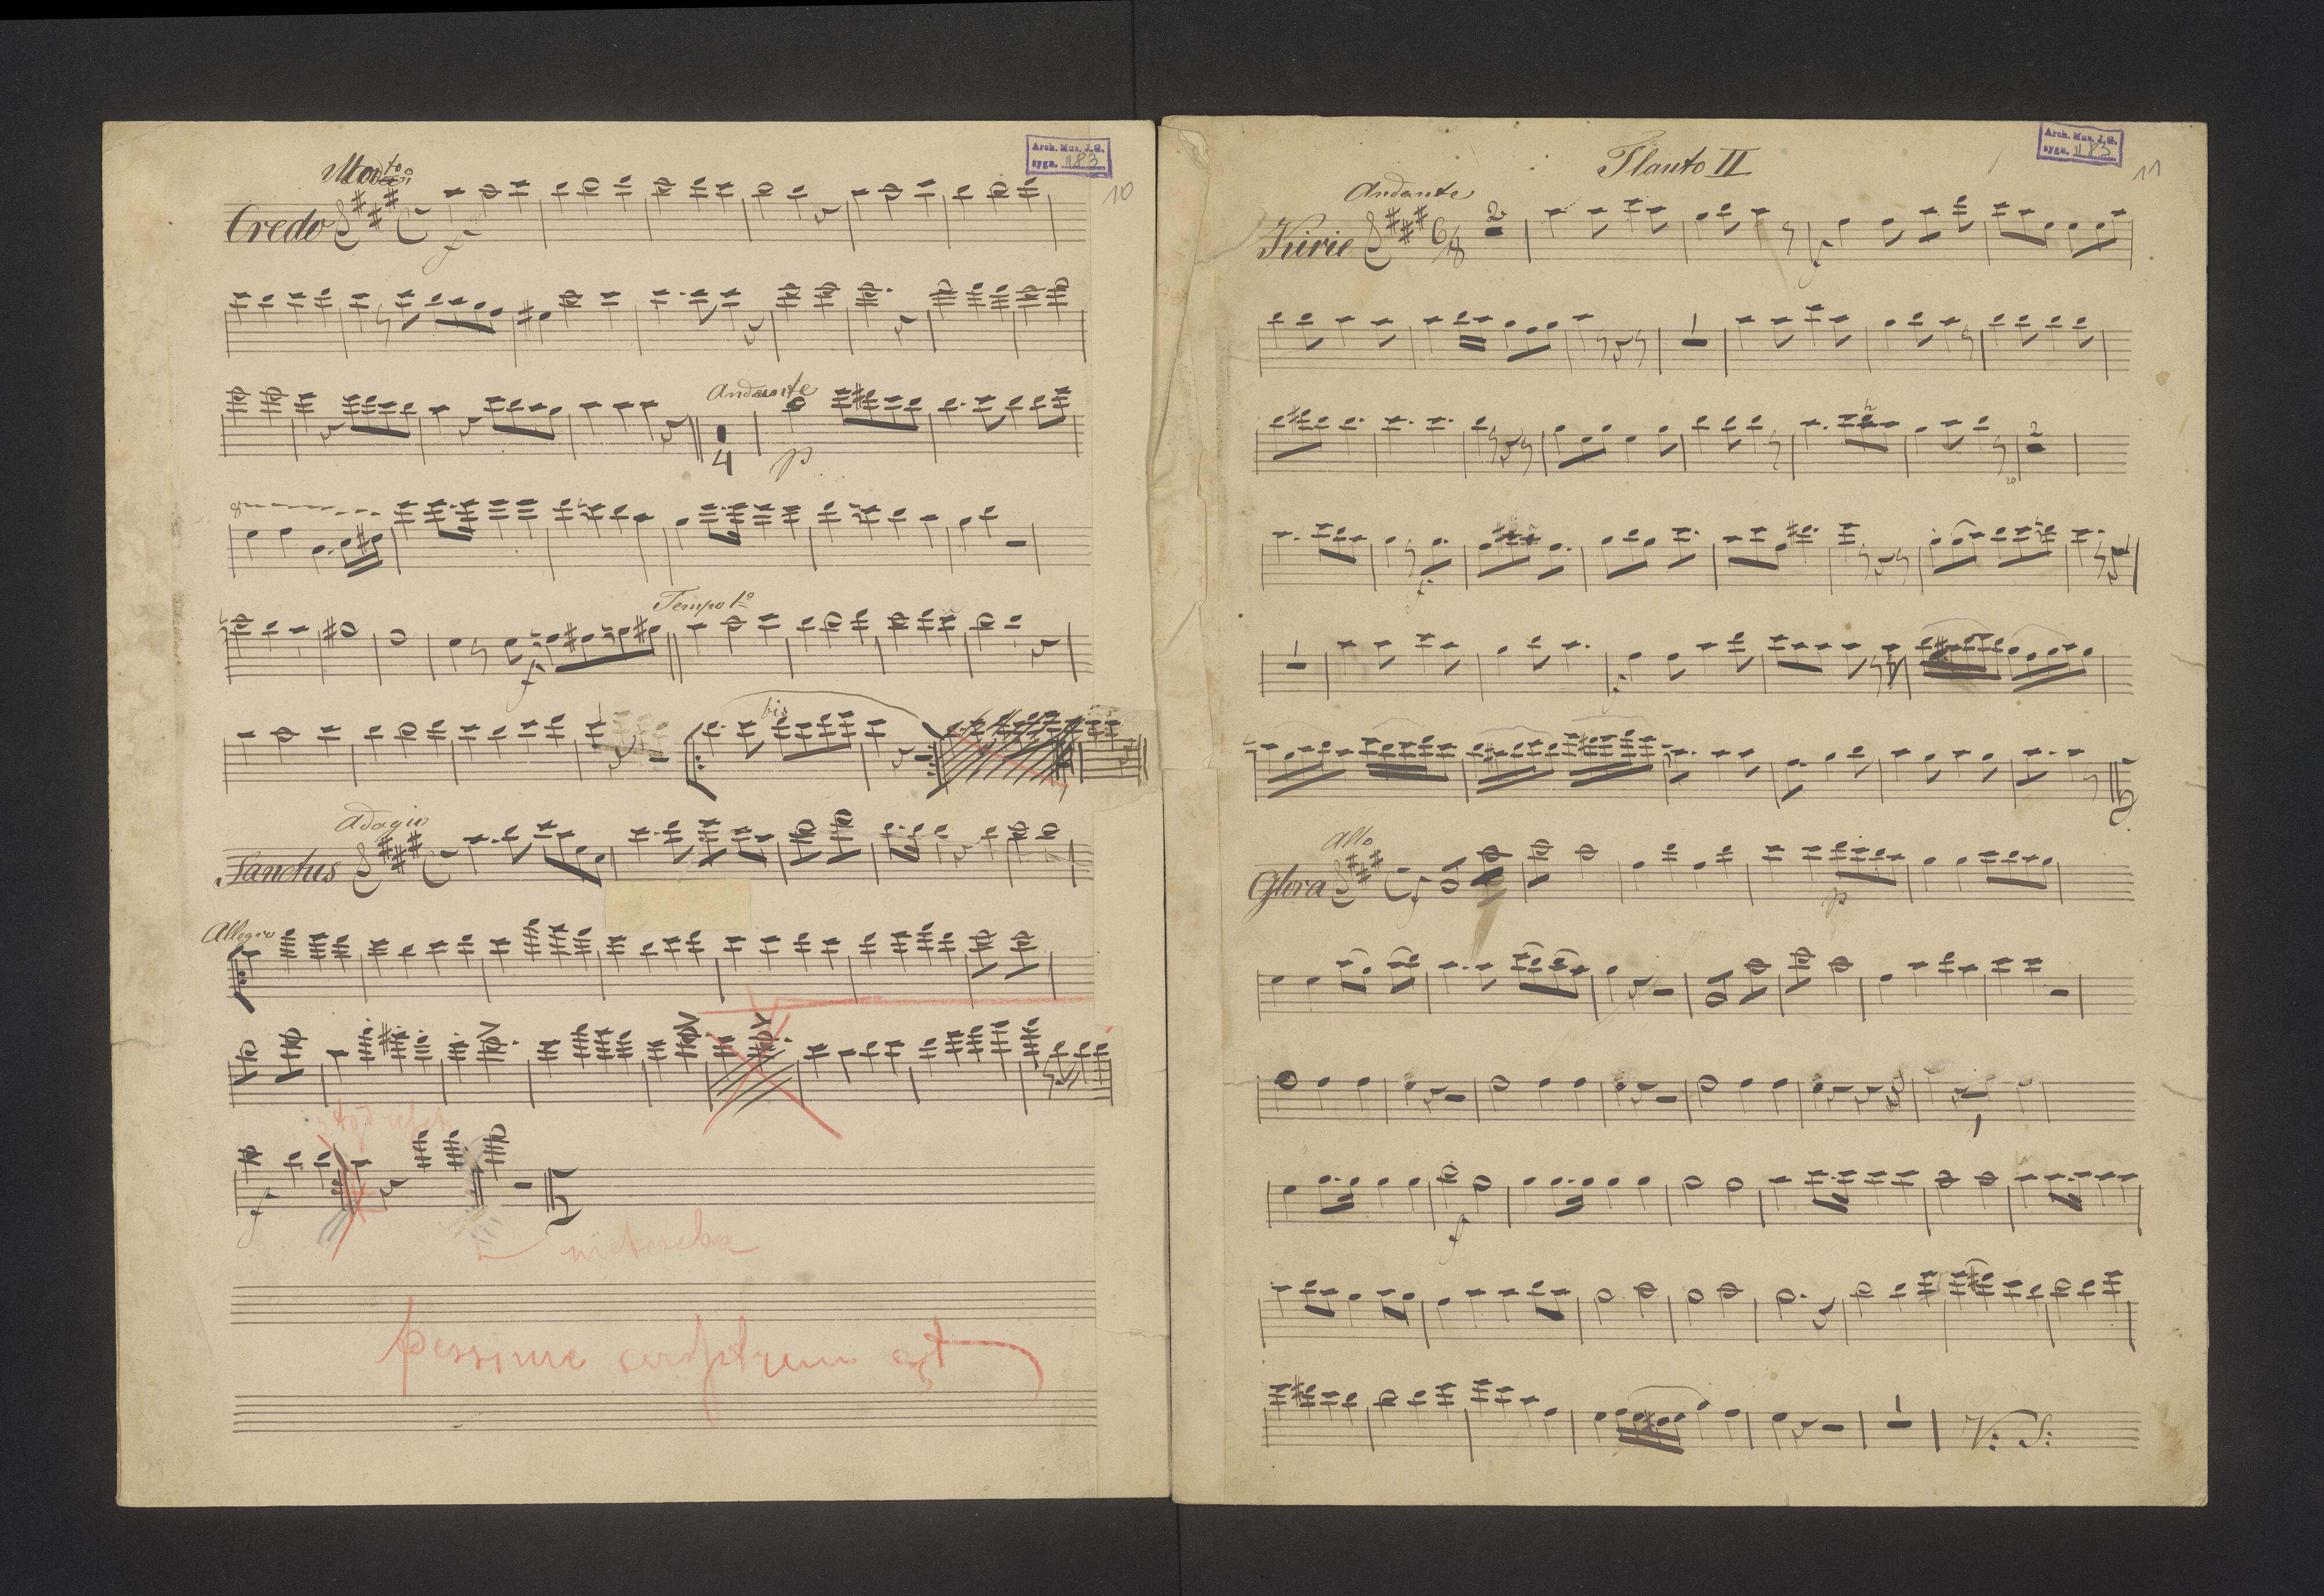 Arch. Mus. J.G.
sygn. 1183
10
Modto
Credo
f
Andante
4
p
8
Tempo 1º
f
bis
Adagio
Sanctus
Allegro
f
pessime scriptum est
Arch. Mus. J.G.
sygn. 1183
11
Flauto II
Andante
Kirie 6/8
2
f
1
2
20
f
1
f
Allo
Glora
f
p
f
1
V: S: